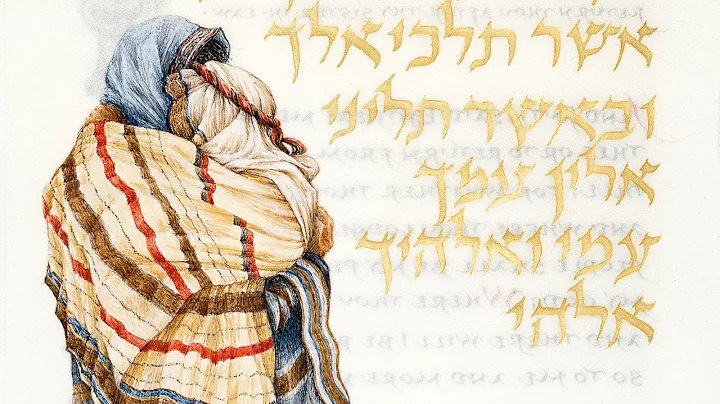 RETURN THOU AFTER THY SISTER IN-LAW
אשר תלכי אלך
ובאשר תליני
THEE OR TO RETURN FROM
אלין עמך
THEE: FOR WHITHER THOU
עמי ואלהיך
PEOPLE SHALL BE MY
WHERE THOU
אלהי
AND THERE WILL I BE
SO TO ME AND MORE